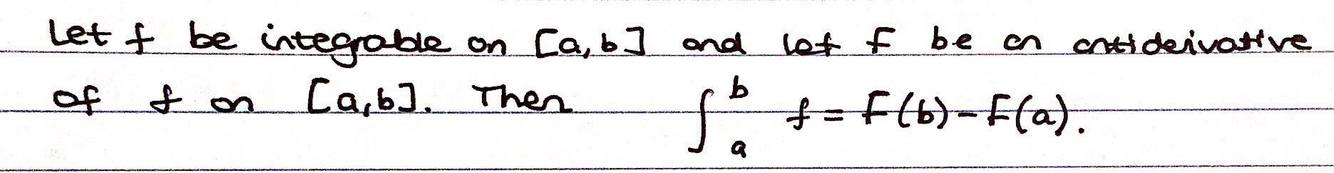 Let f be integrable on [a,b] and let F be an antiderivative
of f on [a,b]. Then ∫_a^b f = F(b)-F(a).